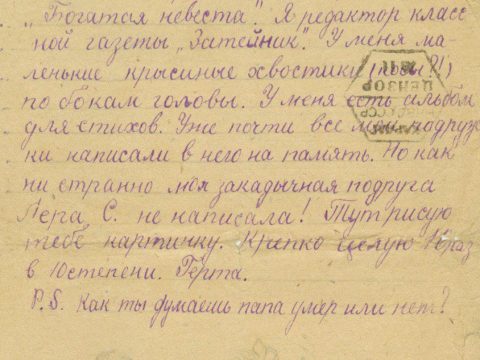 „Богатая невеста". Я редактор класс
ной газеты „Затейник". У меня ма-
ленькие крысиные хвостики (косы!!)
по бокам головы. У меня есть альбом
для стихов. Уже почти все мои подруж
ки написали в него на память. Но как
ни странно моя закадычная подруга
Лера С. не написала! Тут рисую
тебе картинку. Крепко целую 10 раз
в 10 степени. Герта.
P.S. Как ты думаешь папа умер или нет?
ЦЕНЗОР